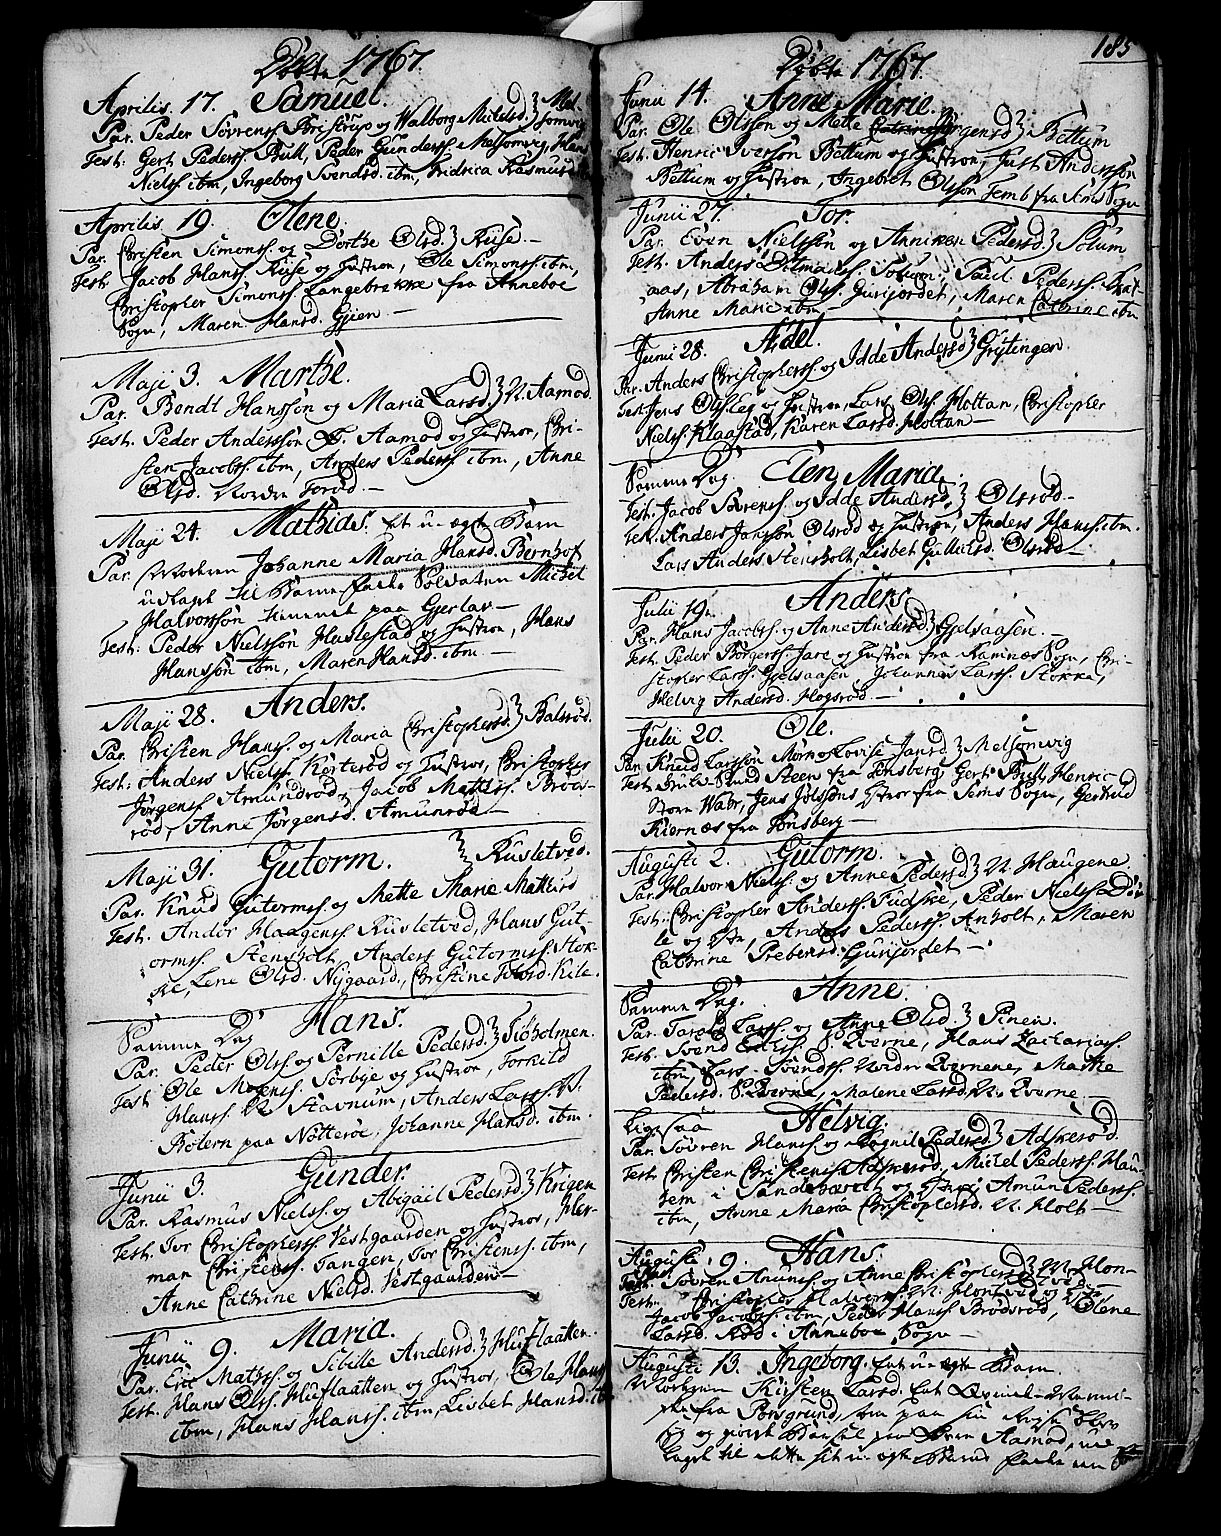 Døbte 1767.
Aprilis. 17. Samuel.
Par. Peder Sövrenss. Bristrup og Walborg Nielsd. Melsomvig
Test: Gert Pederss. Bull, Peder Gunderss. Melsomvig, Hans
Nielss. ibm, Ingeborg Svendsd. ibm, Fridrica Rasmus
Aprilis. 19. Olene.
Par. Christen Simonss. og Dorthe Olsd. Ruse.
Test. Jacob Hanss. Ruse og Hustroe, Ole Simonss. ibm,
Christopher Simonss. Langebrekke fra Anneboe
Sogn, Maren Hansd. Gjien
Maji 3. Marthe.
Par. Bendt Hansson og Maria Larsd. N. Aamod.
Test. Peder Andersson S. Aamod og Hustroe, Chri-
sten Jacobss. ibm, Anders Pederss. ibm, Anne
Olsd. Nordre Forød.
Maji 24. Mathias. Et u-ægte Barn
Par. Moderen Johanne Maria Hansd. Bernhof
udlagt til Barne-fader Soldaten Michel
Halvorssön tienende paa Gjerlar
Test: Peder Nielssön Huslestad og Hustroe, Hans
Hanssön ibm, Maren Hansd. ibm.
Maji 28. Anders.
Par. Christen Hanss. og Maria Christophersd. Balsrød.
Test: Anders Nielss. Kerterød og Hustroe, Christopher
Jørgenss. Amundrød, Jacob Mathiss. Bröds-
röd, Anne Jørgensd. Amunrød
Maji 31. Gutorm. Ruvletved.
Par. Knud Gutormss. og Mette Marie Mathisd
Test. Andor Haagenss. Ruvletved, Hans Gut-
ormss. Stensholt, Anders Gutormss. Stok-
ke, Lene Olsd. Nygaard, Christine Tolvsd. Kile.
Samme Dag Hans.
Par. Peder Olss. og Pernille Pedersd. Siöholmen.
Test Ole Mogenss. Sörbye og Hustroe, Torkild
Hanss. N. Stavnum, Anders Larss. V.
Bolern paa Nötteröe, Johanne Hansd. ibm.
Junii 3. Gunder.
Par. Rasmus Nielss. og Abigäil Pedersd. Krigen
Test. Tor Christopherss. Vestgaarden og Hustroe, Her-
man Christenss. Tangen, Tor Christenss. ibm,
Anne Cathrine Nielsd. Vestgaarden
Junii 9. Maria.
Par. Eric Mathss. og Sibille Andersd. Husflaatten.
Test. Hans Olss. Husflaatten og Hustroe, Ole Hans
ibm, Hans Hanss. ibm, Lisbet Hansd. ibm
185
Døbte 1767.
Junii 14. Anne Marie.
Par. Ole Olsson og Mette Jörgensd. Bettum
Test. Henric Iversön Bettum og Hustroe, Just Anderssön
Bettum og Hustroe, Ingebret Olssön Jemb fra Sems Sogn
Junii 27. Tor.
Par. Even Nielssön og Anniken Pedersd. Solum
Test. Anders Ditmarss. Solum, Paul Pederss.
aas, Abraham Olss. Gurijordet, Maren Cathrine ibm
Anne Marie ibm
Junii 28. Aidel.
Par. Anders Christopherss. og Idde Andersd. Grytingen.
Test. Jens Olss. Eeg og Hustroe, Lars Olss. Holtan, Christopher
Nielss. Klaastad, Karen Larsd. Holtan
Samme Dag. Elen Maria.
Test. Jacob Sövrenss. og Idde Andersd. Olsröd
Test. Anders Janssön Olsröd og Hustroe, Anders Hanss. ibm.
Lars Anderss. Stensholt, Lisbet Gullicsd. Olsröd
Julii 19. Anders.
Par. Hans Jacobss. og Anne Andersd. Gjelsaasen.
Test. Peder Borgerss. Jare og Hustroe fra Ramnæs Sogn, Chri-
stopher Larss. Gjelsaasen, Johannes Larss. Stokke,
Helvig Andersd. Hogsröd.
Julii 20. Ole.
Par. Knud Larssön Mörn og Lovise Jansd. Melsomvig
Test. Steen fra Tonsberg, Gert Bull, Henric
Storm Wabr, Jens Jölssøns Hstroe fra Sems Sogn, Gertrud
Kiernæs fra Tonsberg
Augusti 2. Gutorm.
Par. Halvor Nielss. og Anne Pedersd. N. Haugene
Test: Christopher Anderss. Fudske, Peder Nielssön Dör-
le og Hstr, Anders Pederss. Anholt, Maren
Cathrine Prebensd. Gurijordet
Samme Dag. Anne.
Par. Tarald Larss. og Anne Olsd. Pinen.
Test. Svend S. Qverne, Hans Zachariass.
ibm, Lars Svendss. Nedre Qvernene, Marthe
Pedersd. S. Qverne, Malene Larsd. N. Qverne.
Ligesaa Helvig.
Par. Sövren Hanss. og Pedersd. Adskeröd
Test. Christen Christenss. Adskeröd, Michel Pederss. Hau-
gem i Sandeherredt og Hstroe, Amun Pederss.
ibm, Anne Maria Christophersd. N. Holt
Augusti 9. Hans.
Par. Sövren Amunss. og Anne Christophersd. N. Hon-
tved
Test. Christopher Halvorss. N. Hontved og Hstr,
Jacob Jacobss. ibm, Peder Hanss. Brödsröd, Olene
Larsd. Röd i Anneboe Sogn
Augusti 13. Ingeborg. Et u-ægte Barn
Moderen Kirsten Larsd. Et Qvinde-Menni-
ske fra Porsgrund, som paa sin Reyse blev
syg og giorde Barsel paa Aamod, ud-
lagde til dette sit u-ægte Barns Fader en